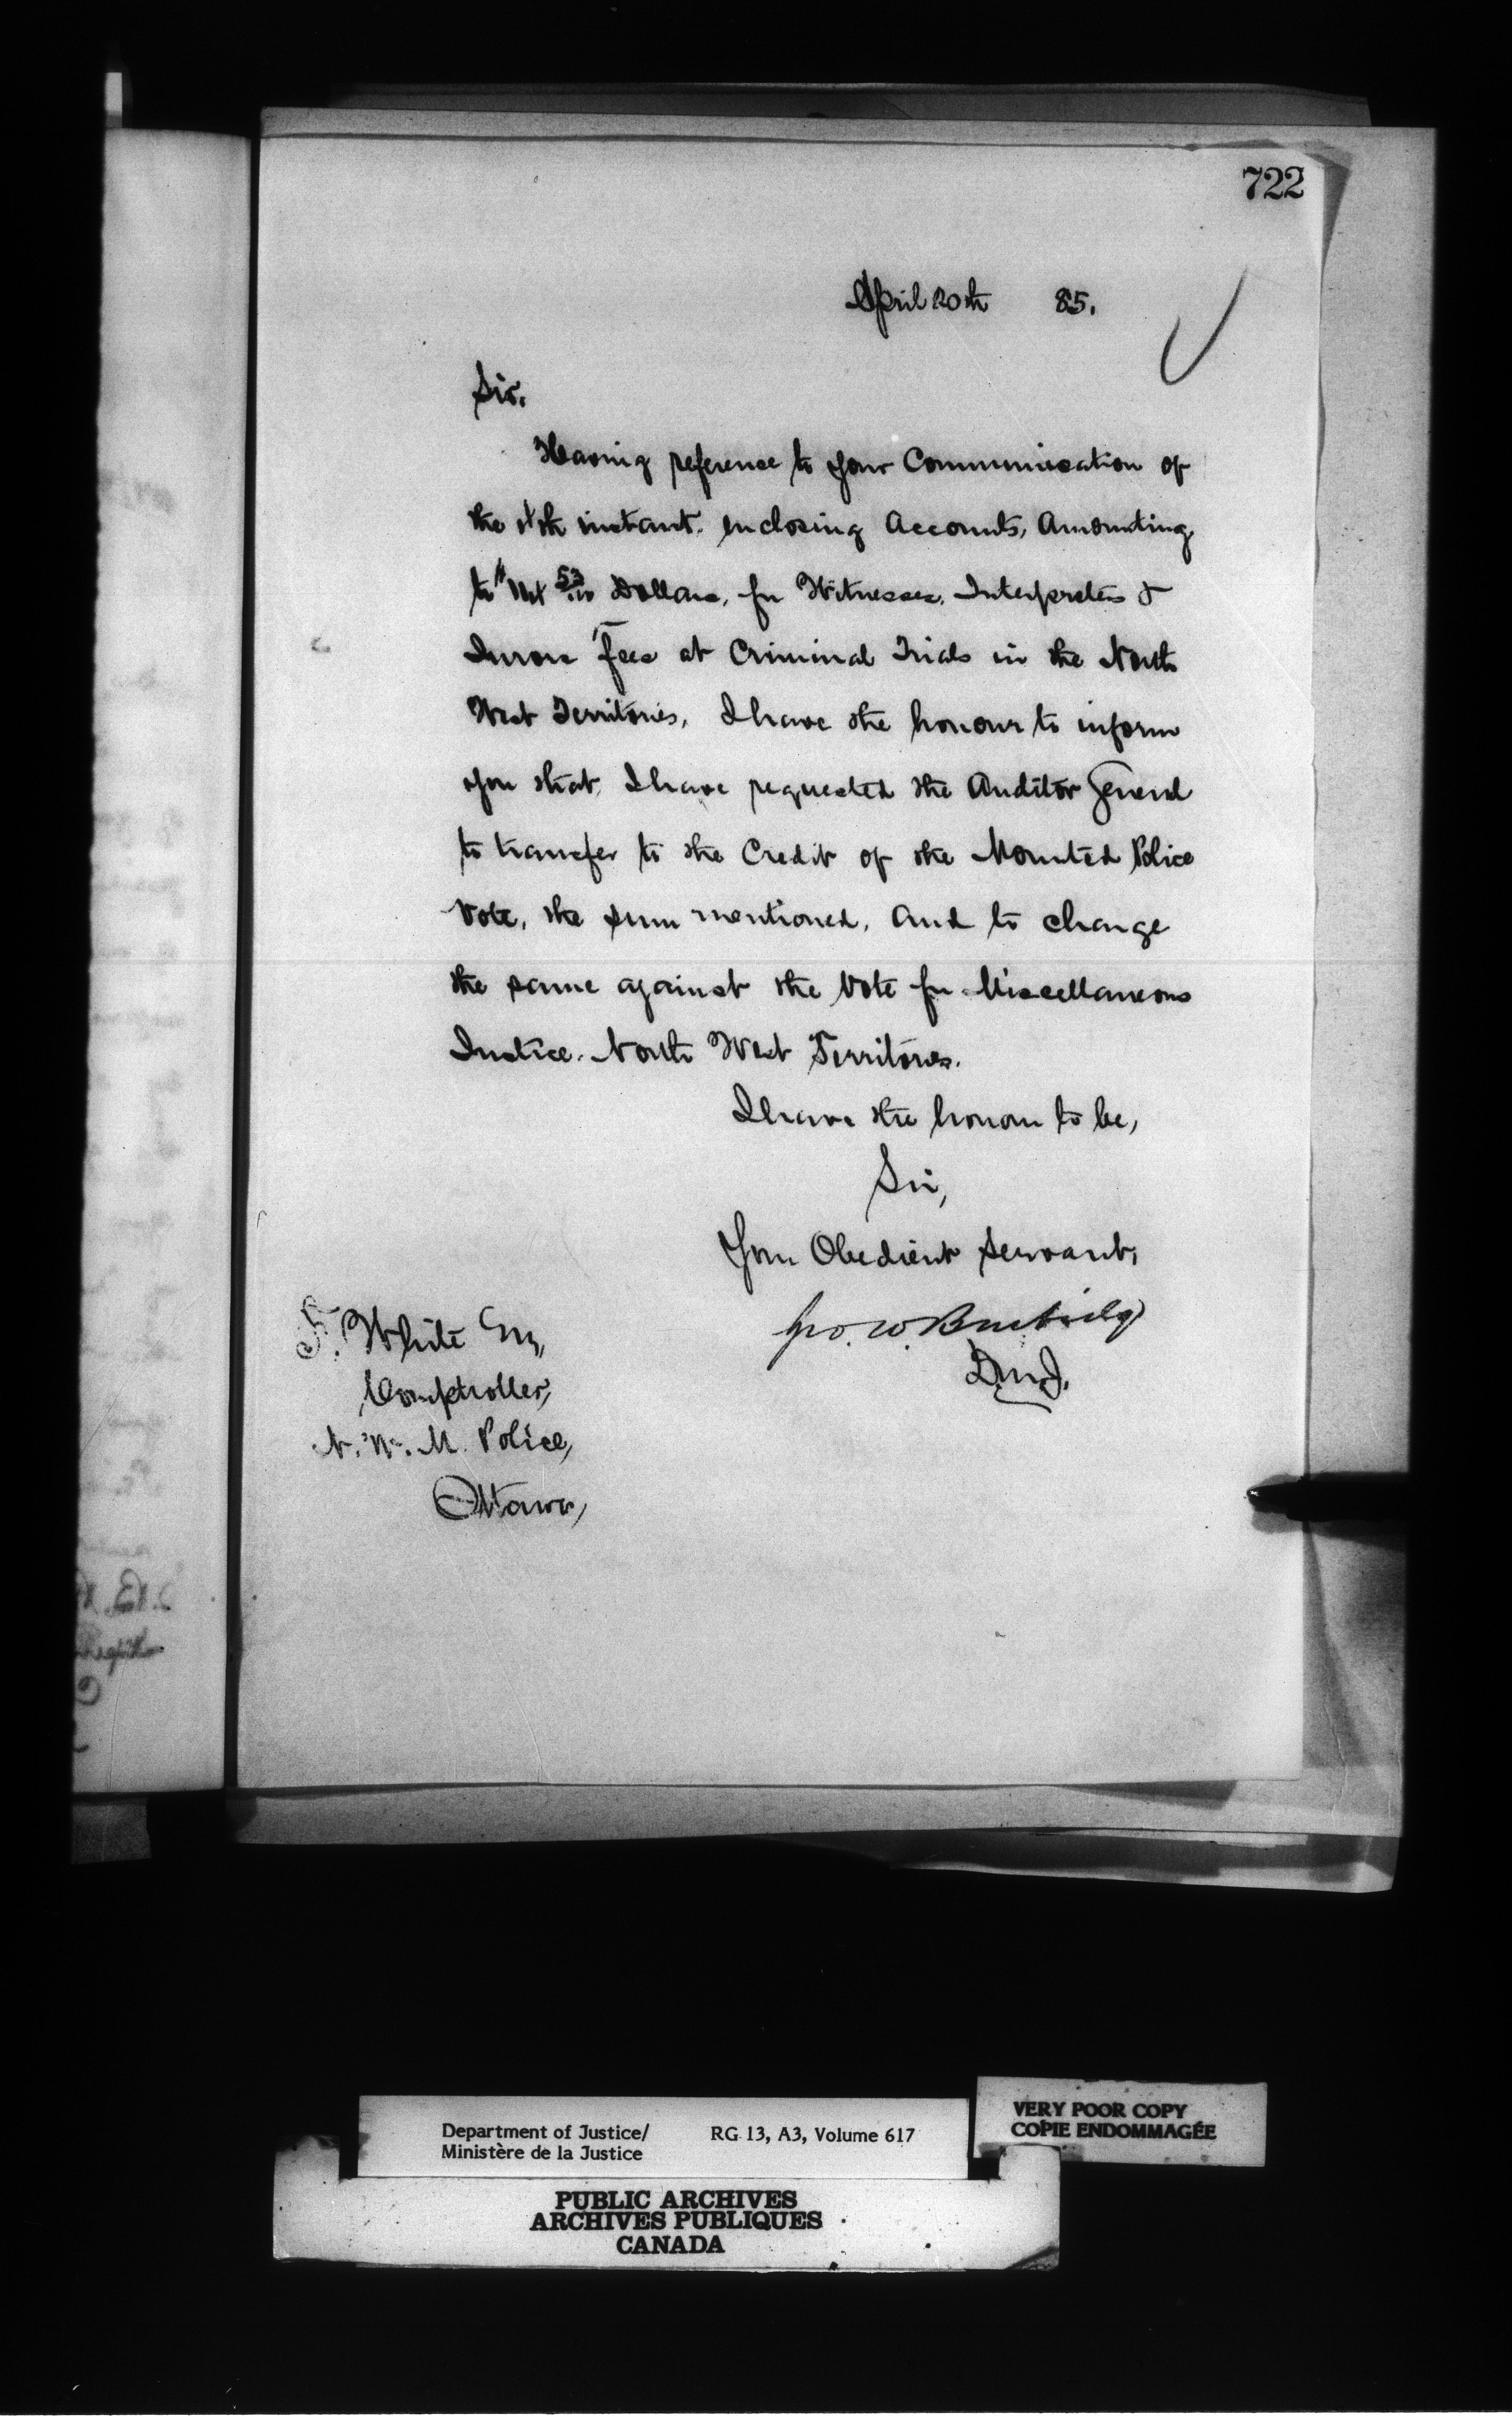 722
April 20th 85.
Sir.
Having reference to your Communication of
the instant. enclosing Accounts, Amounting
to 53 Dollars, for Witnesses, Interpreters &
Jurors Fees at Criminal Trials in the North
West Territories, I have the honour to inform
you that, I have requested the Auditor General
to transfer to the Credit of the Mounted Police
Vote, the sum mentioned, and to charge
the same against the Vote for Miscellaneous
Justice. North West Territories.
I have the honour to be,
Sir,
Your Obedient Servant,
Geo. W. Burbidge
D.M.J.
F. White Esq,
Comptroller,
N. W. M. Police,
Ottawa,
Department of Justice/ RG 13, A3, Volume 617
Ministère de la Justice
VERY POOR COPY
COPIE ENDOMMAGÉE
PUBLIC ARCHIVES
ARCHIVES PUBLIQUES
CANADA